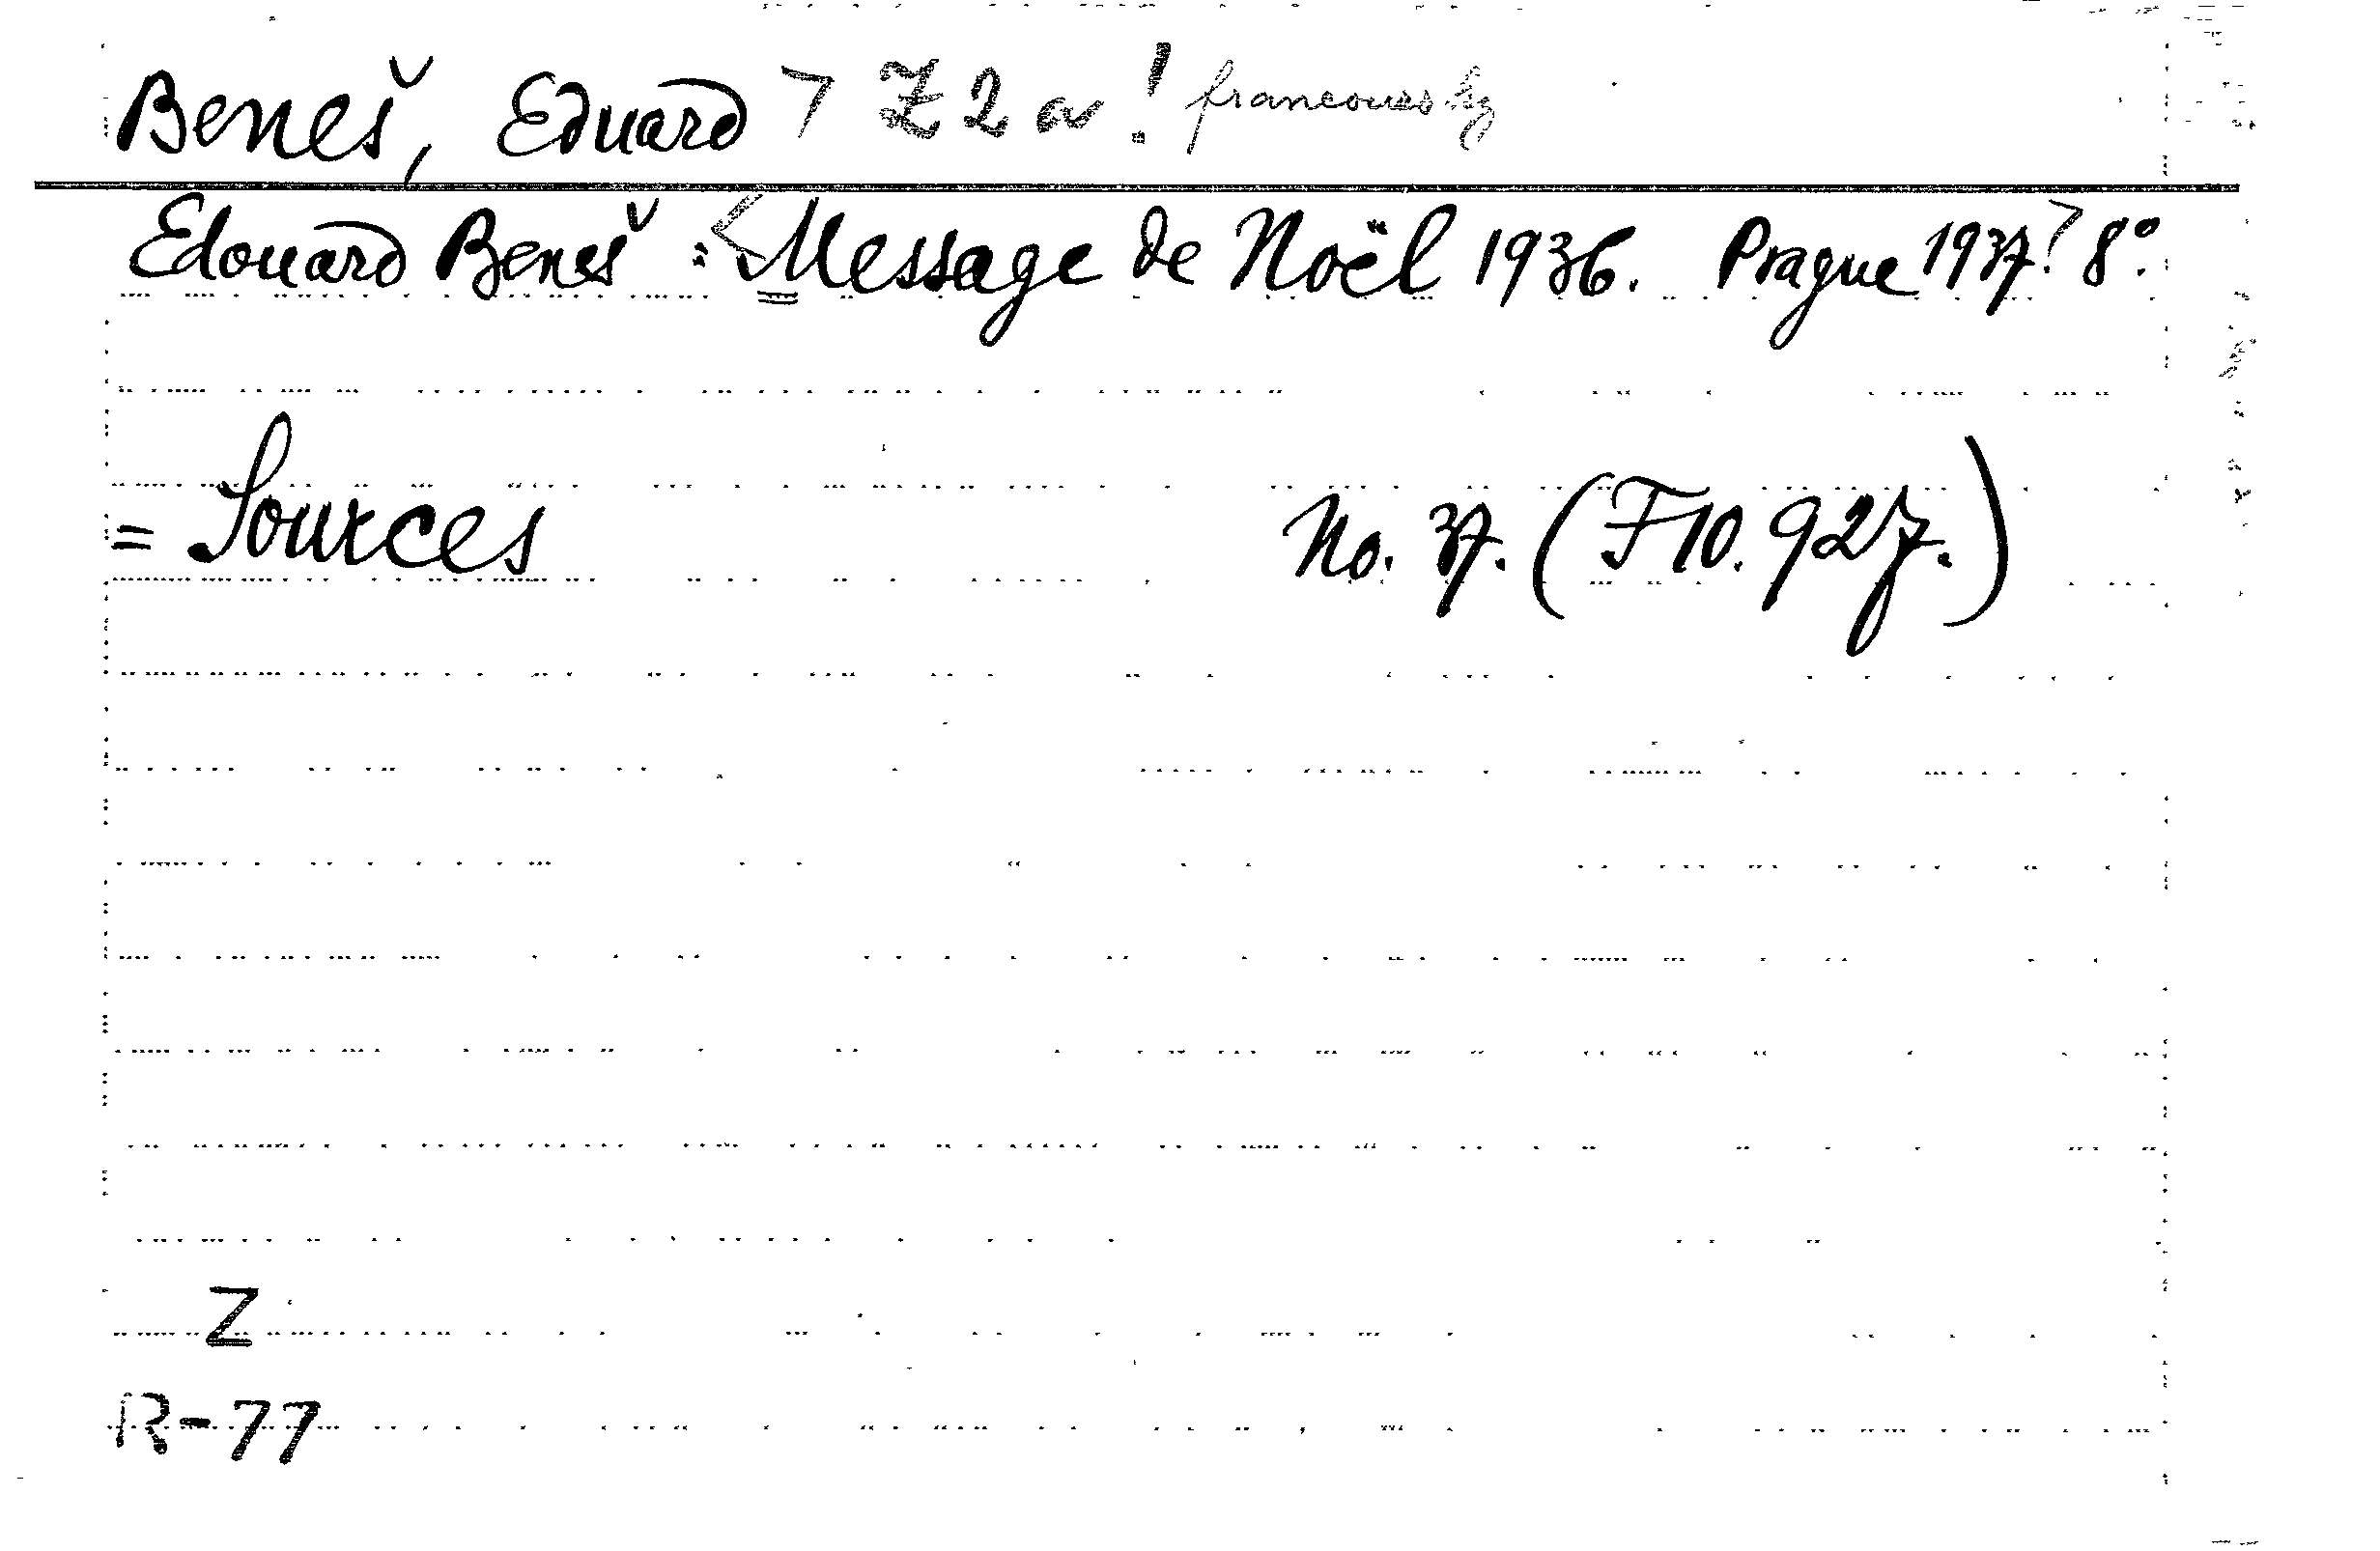 Beneš, Eduard 7 Z 2 a! francouzsky
Edouard Beneš: Message de Noël 1936. Prague 1937. 8°.
= Sources No. 37. (F 10.927.)
Z
R-77